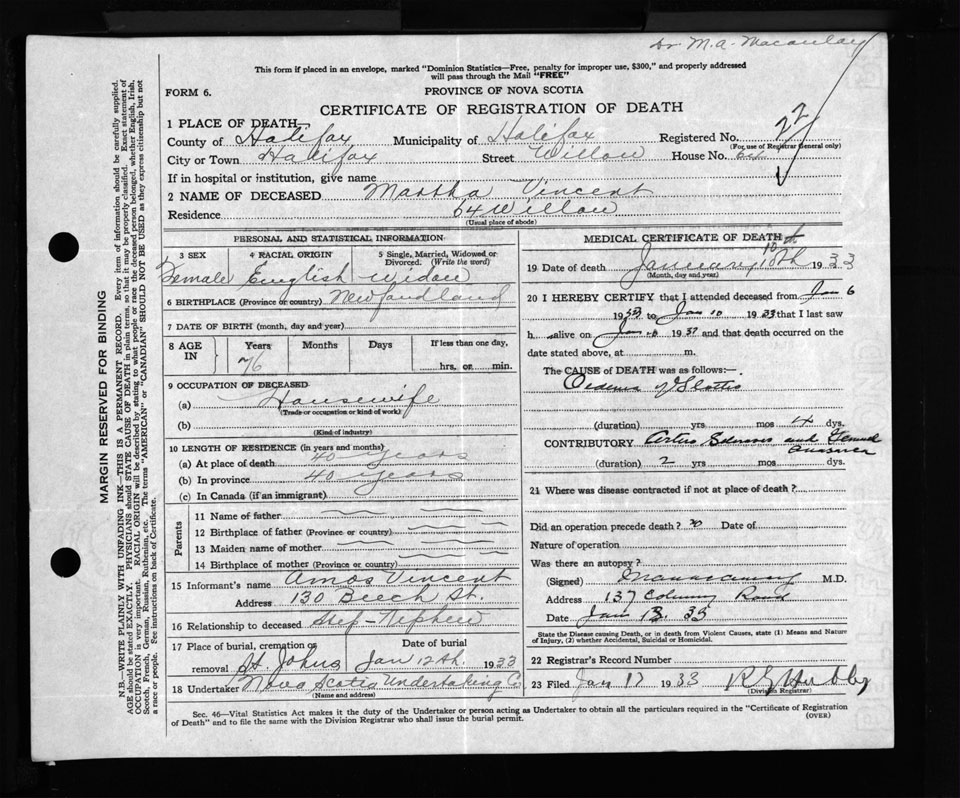 Dr M.A. Macaulay
This form if placed in an envelope, marked "Dominion Statistics—Free, penalty for improper use, $300," and properly addressed
will pass through the Mail "FREE"
FORM 6.
PROVINCE OF NOVA SCOTIA
CERTIFICATE OF REGISTRATION OF DEATH
1 PLACE OF DEATH—
County of Halifax Municipality of Halifax Registered No. 22
(For use of Registrar General only)
City or Town Halifax Street Willow House No. 64
If in hospital or institution, give name
2 NAME OF DECEASED Martha Vincent
Residence 64 Willow
(Usual place of abode)
PERSONAL AND STATISTICAL INFORMATION
3 SEX 4 RACIAL ORIGIN 5 Single, Married, Widowed or Divorced. (Write the word)
Female English Widow
6 BIRTHPLACE (Province or country) Newfoundland
7 DATE OF BIRTH (month, day and year)
8 AGE IN Years Months Days If less than one day,
76 hrs. or min.
9 OCCUPATION OF DECEASED
(a) Housewife
(Trade or occupation or kind of work)
(b)
(Kind of industry)
10 LENGTH OF RESIDENCE (in years and months)
(a) At place of death 40 years
(b) In province 40 years
(c) In Canada (if an immigrant)
Parents
11 Name of father
12 Birthplace of father (Province or country)
13 Maiden name of mother
14 Birthplace of mother (Province or country)
15 Informant's name Amos Vincent
Address 130 Beech St.
16 Relationship to deceased Step-Nephew
17 Place of burial, cremation or removal Date of burial
St. Johns Jan 12th. 1933
18 Undertaker Nova Scotia Undertaking Co
(Name and address)
MEDICAL CERTIFICATE OF DEATH
19 Date of death January 10th 1933
(Month, day and year)
20 I HEREBY CERTIFY that I attended deceased from Jan 6
1933 to Jan 10 1933 that I last saw
h alive on Jan 10 1937 and that death occurred on
date stated above, at m.
The CAUSE of DEATH was as follows:—
Oedema of Glottis
(duration) yrs mos 4 dys.
CONTRIBUTORY Arterio Sclerosis and General
(duration) 2 yrs mos dys.
21 Where was disease contracted if not at place of death?
Did an operation precede death? no Date of
Nature of operation
Was there an autopsy?
(Signed) M.D.
Address 137 Road
Date Jan 13. 33
State the Disease causing Death, or in death from Violent Causes, state (1) Means and Nature of Injury, (2) whether Accidental, Suicidal or Homicidal.
22 Registrar's Record Number
23 Filed Jan 17 1933
(Division Registrar)
Sec. 46—Vital Statistics Act makes it the duty of the Undertaker or person acting as Undertaker to obtain all the particulars required in the "Certificate of Registration
of Death" and to file the same with the Division Registrar who shall issue the burial permit.
(OVER)
MARGIN RESERVED FOR BINDING
N.B.—WRITE PLAINLY WITH UNFADING INK—THIS IS A PERMANENT RECORD. Every item of information should be carefully supplied.
AGE should be stated EXACTLY. PHYSICIANS should STATE CAUSE OF DEATH in plain terms, so that it may be properly classified. Exact statement of
OCCUPATION is very important. RACIAL ORIGIN will be described by stating to what people or race the deceased person belonged, whether English, Irish,
Scotch, French, German, Russian, Ruthenian, etc. The terms "AMERICAN" or "CANADIAN" SHOULD NOT BE USED as they express citizenship but not
a race or people. See instructions on back of Certificate.